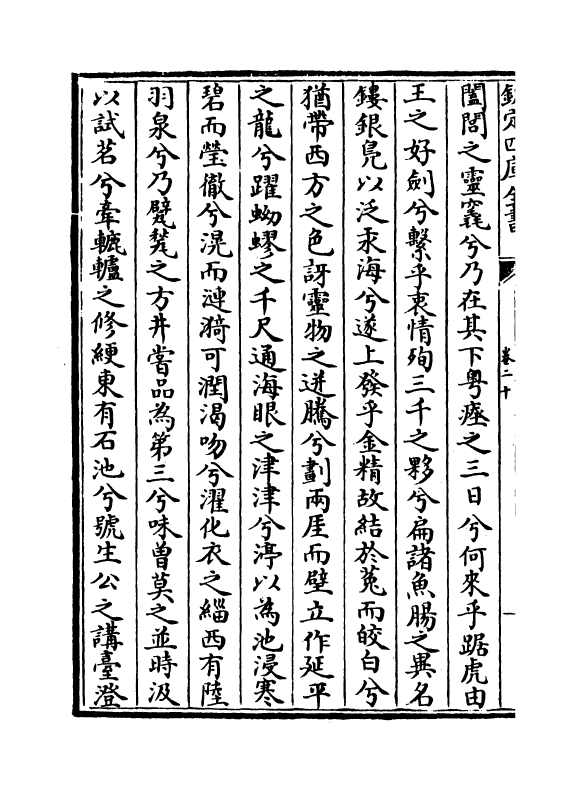 欽定四庫全書
卷二十
闔閭之靈窀兮乃在其下粤瘞之三日兮何來乎踞虎由
王之好劍兮繫乎衷情殉三千之夥兮扁諸魚腸之異名
鏤銀鳬以泛汞海兮遂上發乎金精故結於菟而皎白兮
猶帶西方之色訝靈物之迸騰兮劃兩厓而壁立作延平
之龍兮躍蚴蟉之千尺通海眼之津津兮渟以為池浸寒
碧而瑩徹兮滉而漣漪可潤渴吻兮濯化衣之緇西有陸
羽泉兮乃甓甃之方井嘗品為第三兮味曽莫之並時汲
以試茗兮牽轆轤之修綆東有石池兮號生公之講臺澄